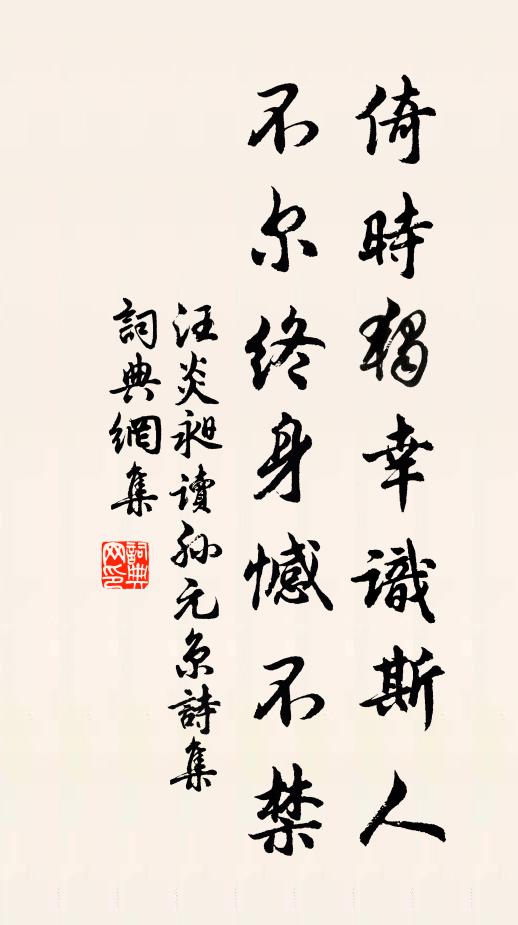 倚時獨幸識斯人
不尔終身憾不禁
汪炎昶讀孙元京詩集
詞典網集
詞典网印